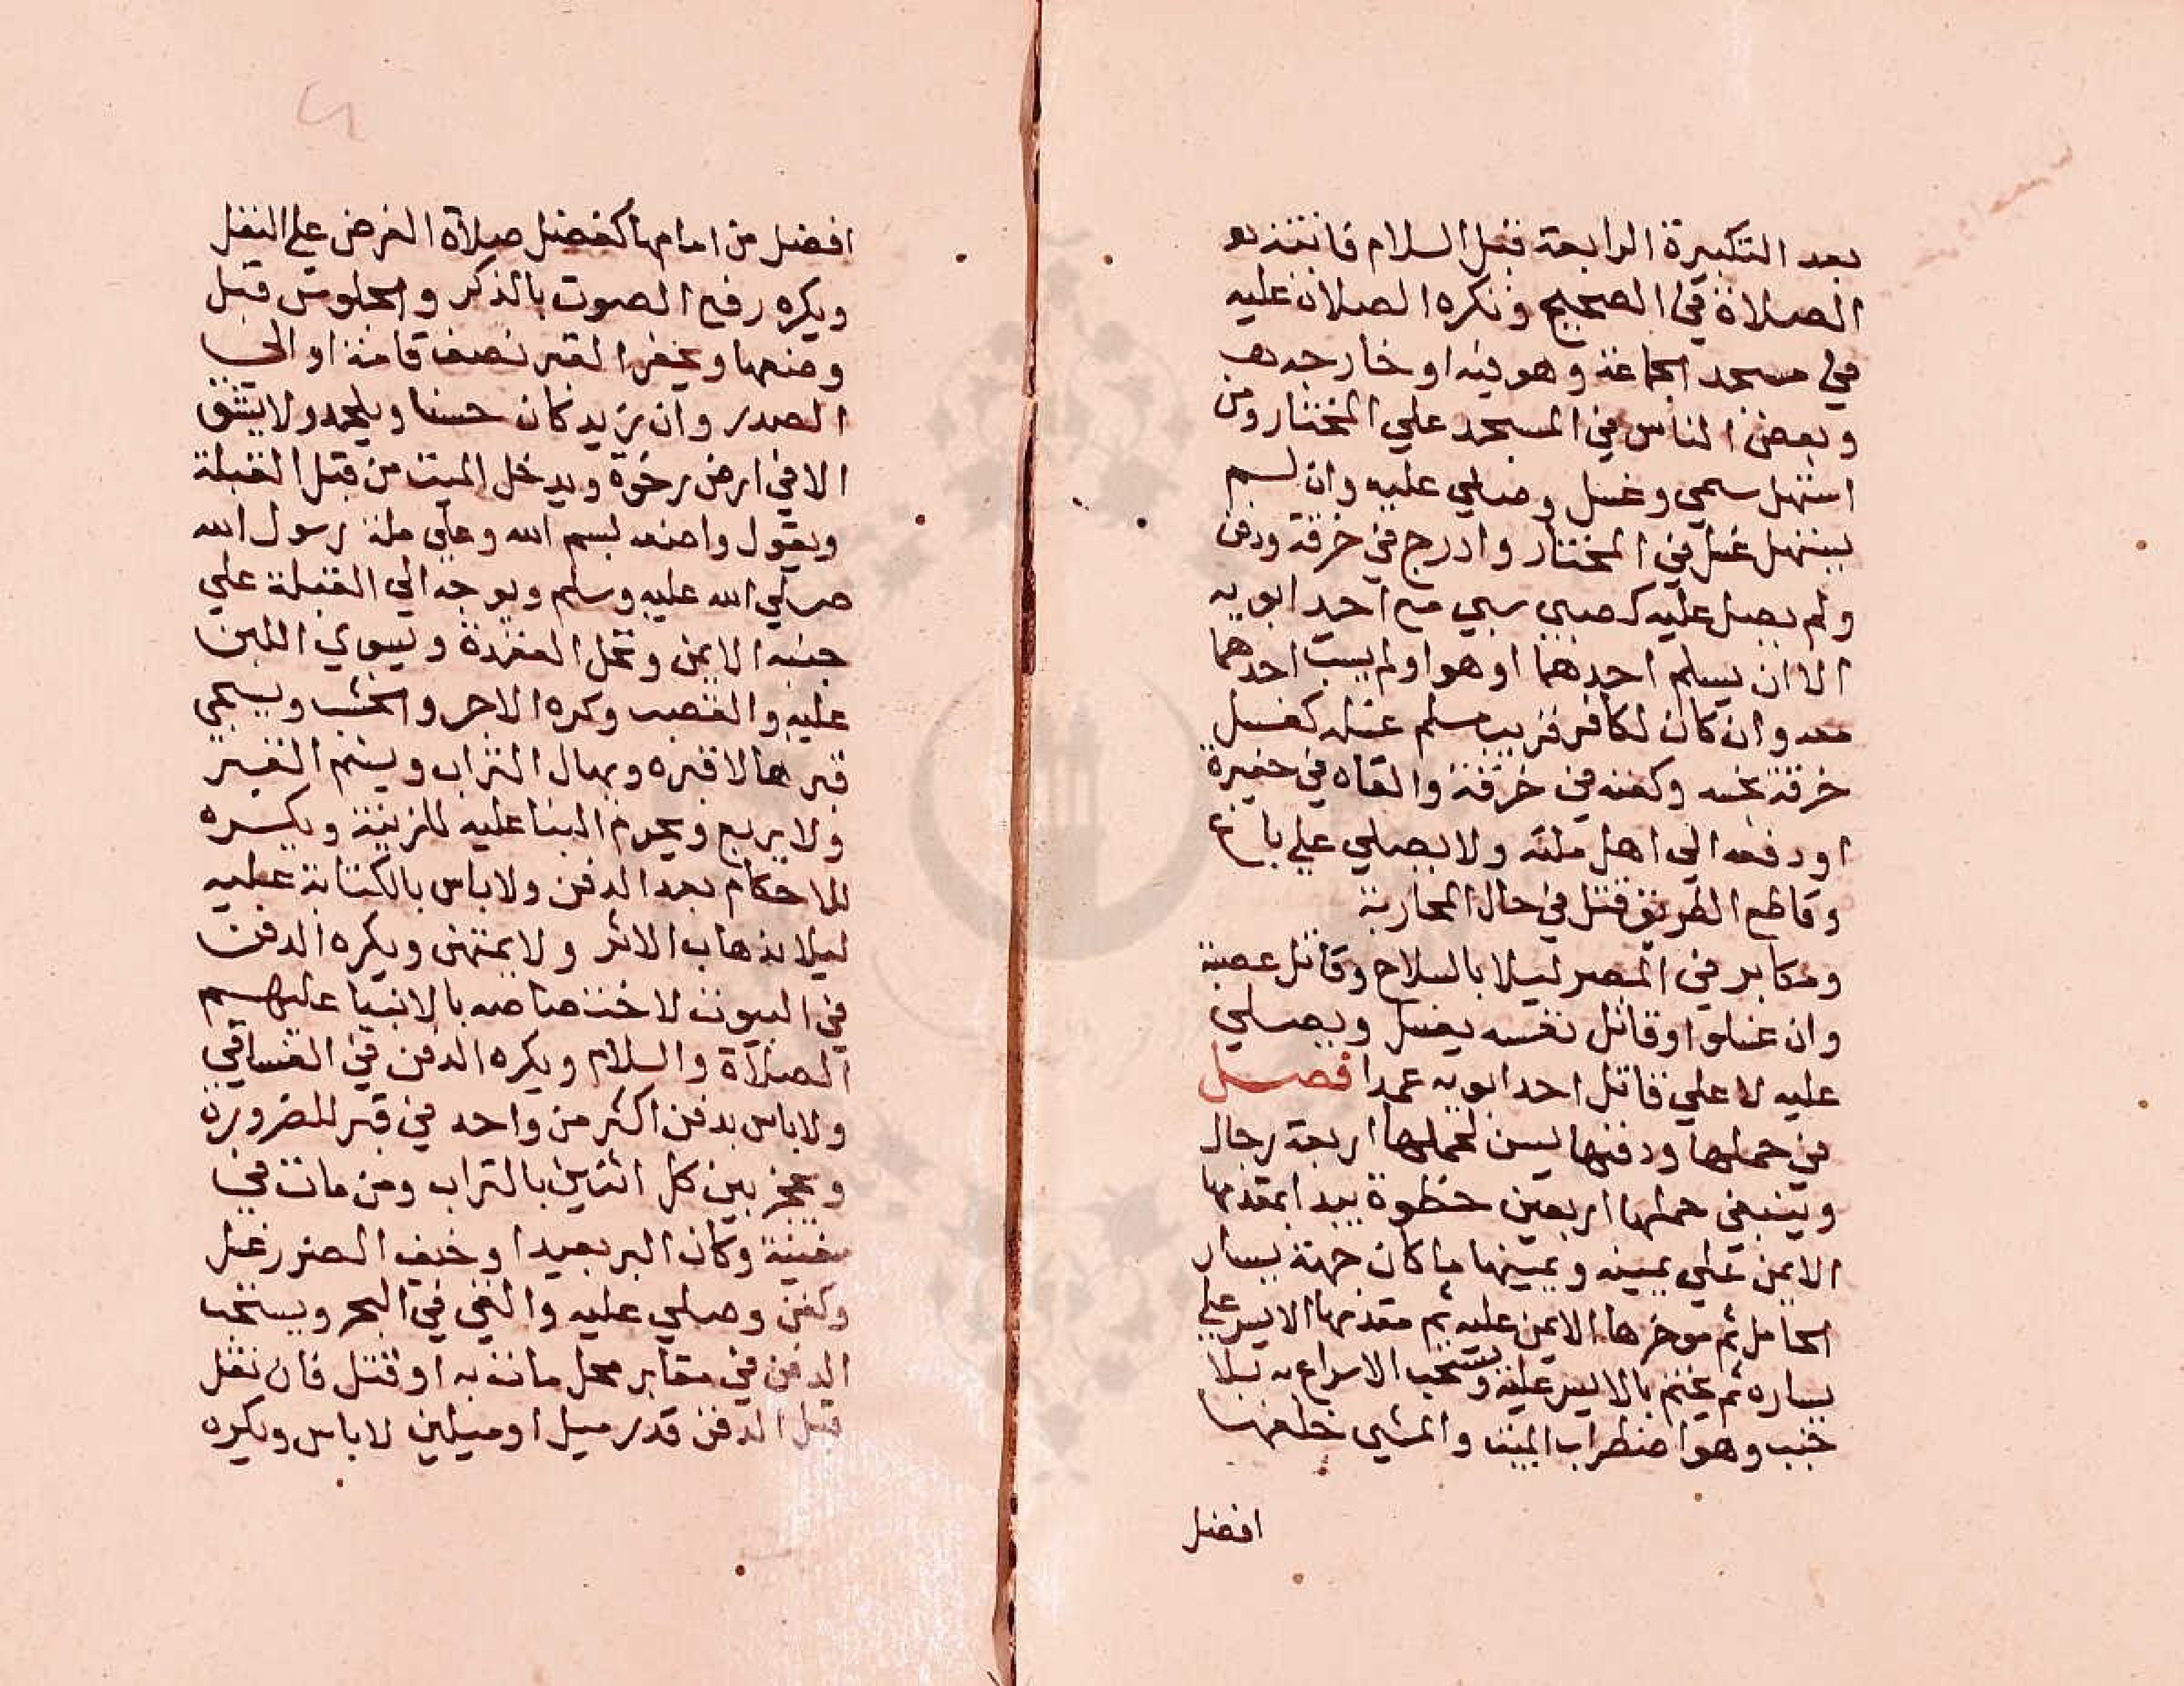 بعد التكبيرة الرابعة قبل السلام فاتته
الصلاة في الصحيح وتكره الصلاة عليه
في مسجد الجماعة وهو فيه او خارجه
وبعض الناس في المسجد علي المختار ومن
استهل سمي وغسل وصلي عليه وان لم
يستهل غسل في المختار وادرج في خرقة ودفن
ولم يصل عليه كصبي سبي مع احد ابويه
الا ان يسلم احدهما او هو او لم يسب احدهما
معه وان كان لكافر قريب مسلم غسله كغسل
خرقة نجسه وكفنه في خرقة والقاه في حفيرة
او دفعه الي اهل ملته ولا يصلي علي باغ
وقاطع الطريق قتل في حال المحاربة
ومكابر في المصر ليلا بالسلاح وقاتل عصبة
وان غسلوا وقاتل نفسه يغسل ويصلي
عليه لا علي قاتل احد ابويه عمدا فصل
في حملها ودفنها يسن لحملها اربعة رجال
وينبغي حملها اربعين خطوة يبدا بمقدمها
الايمن علي يمينه ويمينها ما كان جهة يسار
الحامل ثم موخرها الايمن عليه ثم مقدمها الايسر علي
يساره ثم يختم بالايسر عليه ويستحب الاسراع به بلا
خبب وهو اضطراب الميت والمشي خلفها
افضل
افضل من امامها كفضل صلاة الفرض علي النفل
ويكره رفع الصوت بالذكر والجلوس قبل
وضعها ويحفر القبر نصف قامة او الي
الصدر وان يزيد كان حسنا ويلحد ولا يشق
الا في ارض رخوة ويدخل الميت من قبل القبلة
ويقول واضعه بسم الله وعلي ملة رسول الله
صلي الله عليه وسلم ويوجه الي القبلة علي
جنبه الايمن وتحل العقدة ويسوي اللبن
عليه والقصب وكره الاجر والخشب ويسجي
قبرها لا قبره ويهال التراب ويسنم القبر
ولا يربع ويحرم البنا عليه للزينة ويكره
للاحكام بعد الدفن ولا باس بالكتابة عليه
ليلا يذهاب الاثر ولا يمتهن ويكره الدفن
في البيوت لاختصاصه بالانبيا عليهم
الصلاة والسلام ويكره الدفن في الفساقي
ولا باس بدفن اكثر من واحد في قبر للضرورة
ويحجز بين كل اثنين بالتراب ومن مات في
سفينة وكان البر بعيدا وخيف الضرر غسل
وكفن وصلي عليه والقي في البحر ويستحب
الدفن في مقابر محل مات به او قتل فان نقل
قبل الدفن قدر ميل او ميلين لا باس ويكره